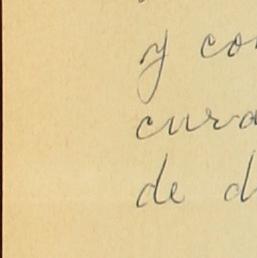 y co
cura
de d